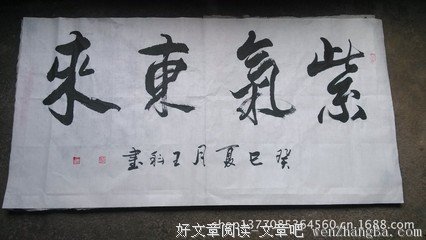 紫氣東來
癸巳夏月王科書
shop1377085364560.cn.1688.com
好文章阅读-文章吧 wenzhangba.com